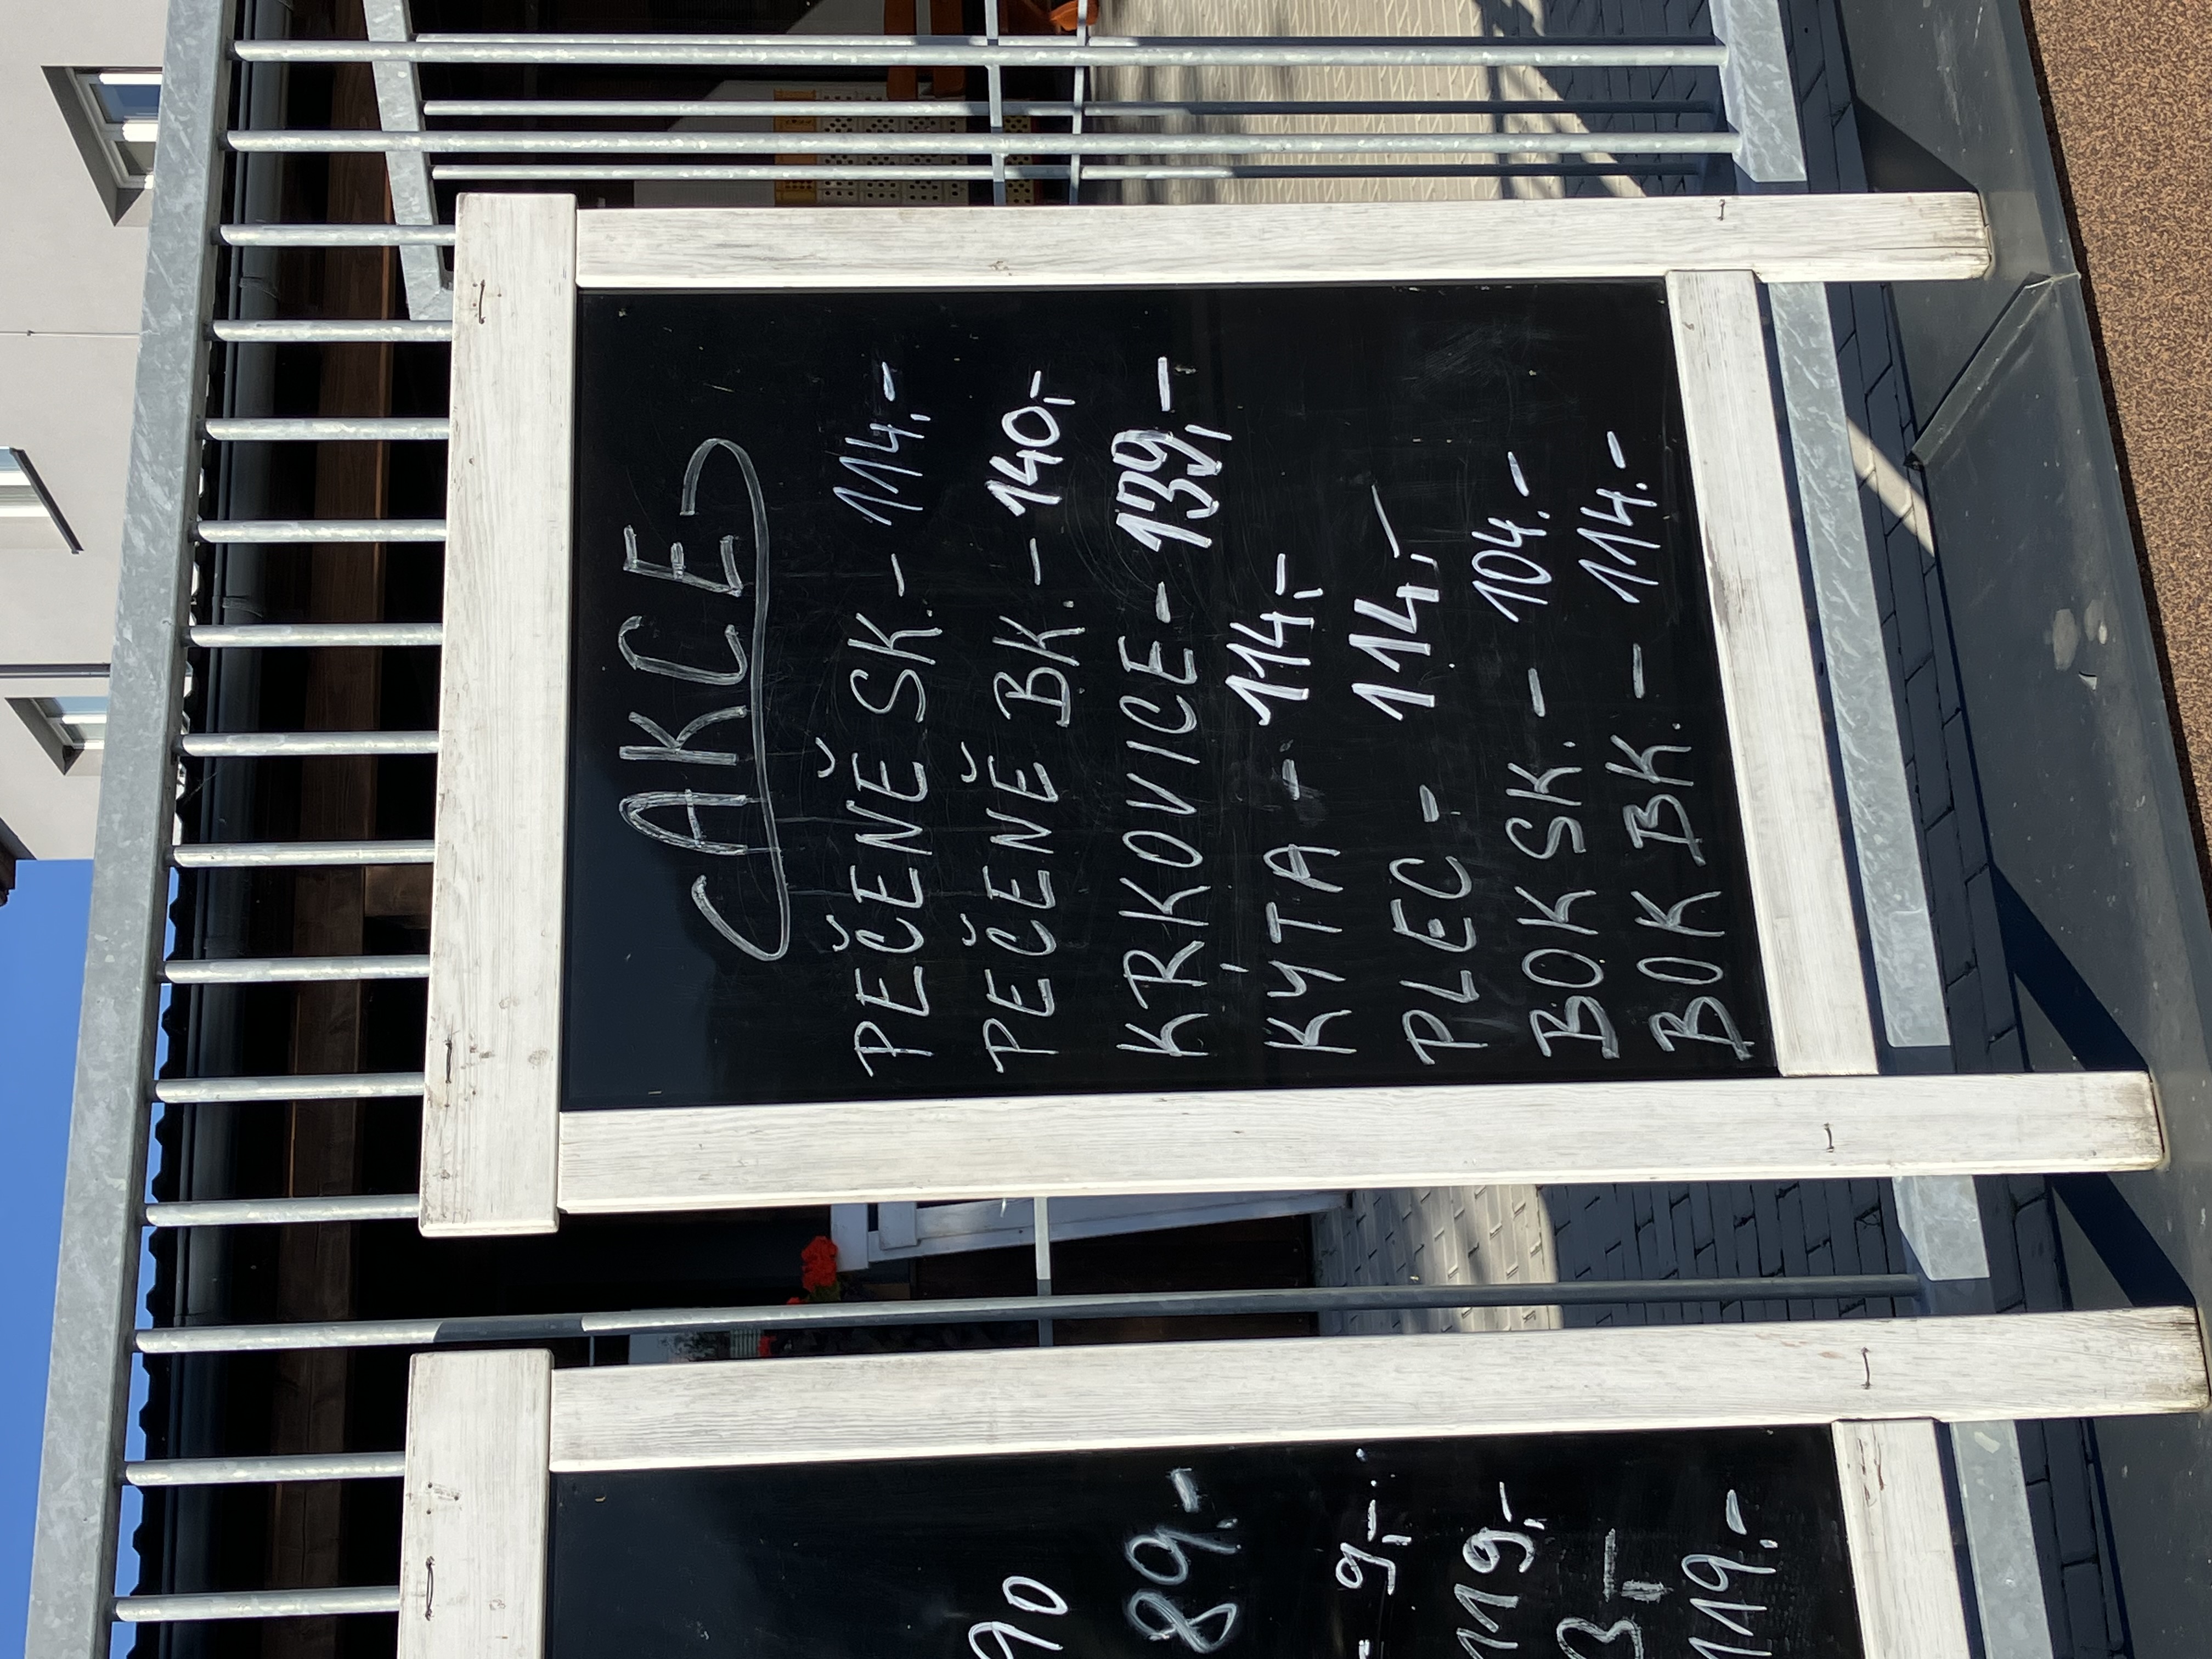 AKCE
PEČENĚ SK. - 114,-
PEČENĚ BK. - 140,-
KRKOVICE - 139,-
KÝTA - 114,-
PLEC - 114,-
BOK SK. - 104.-
BOK BK. - 114.-
90
89.-
9,-
119,-
119.-